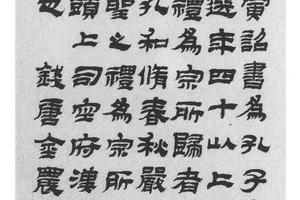 寅詔書為孔子
選年四十以上
禮為宗所歸者
孔和脩春秋嚴
聖之禮為宗所
頭上司空府漢
也 錢唐金農